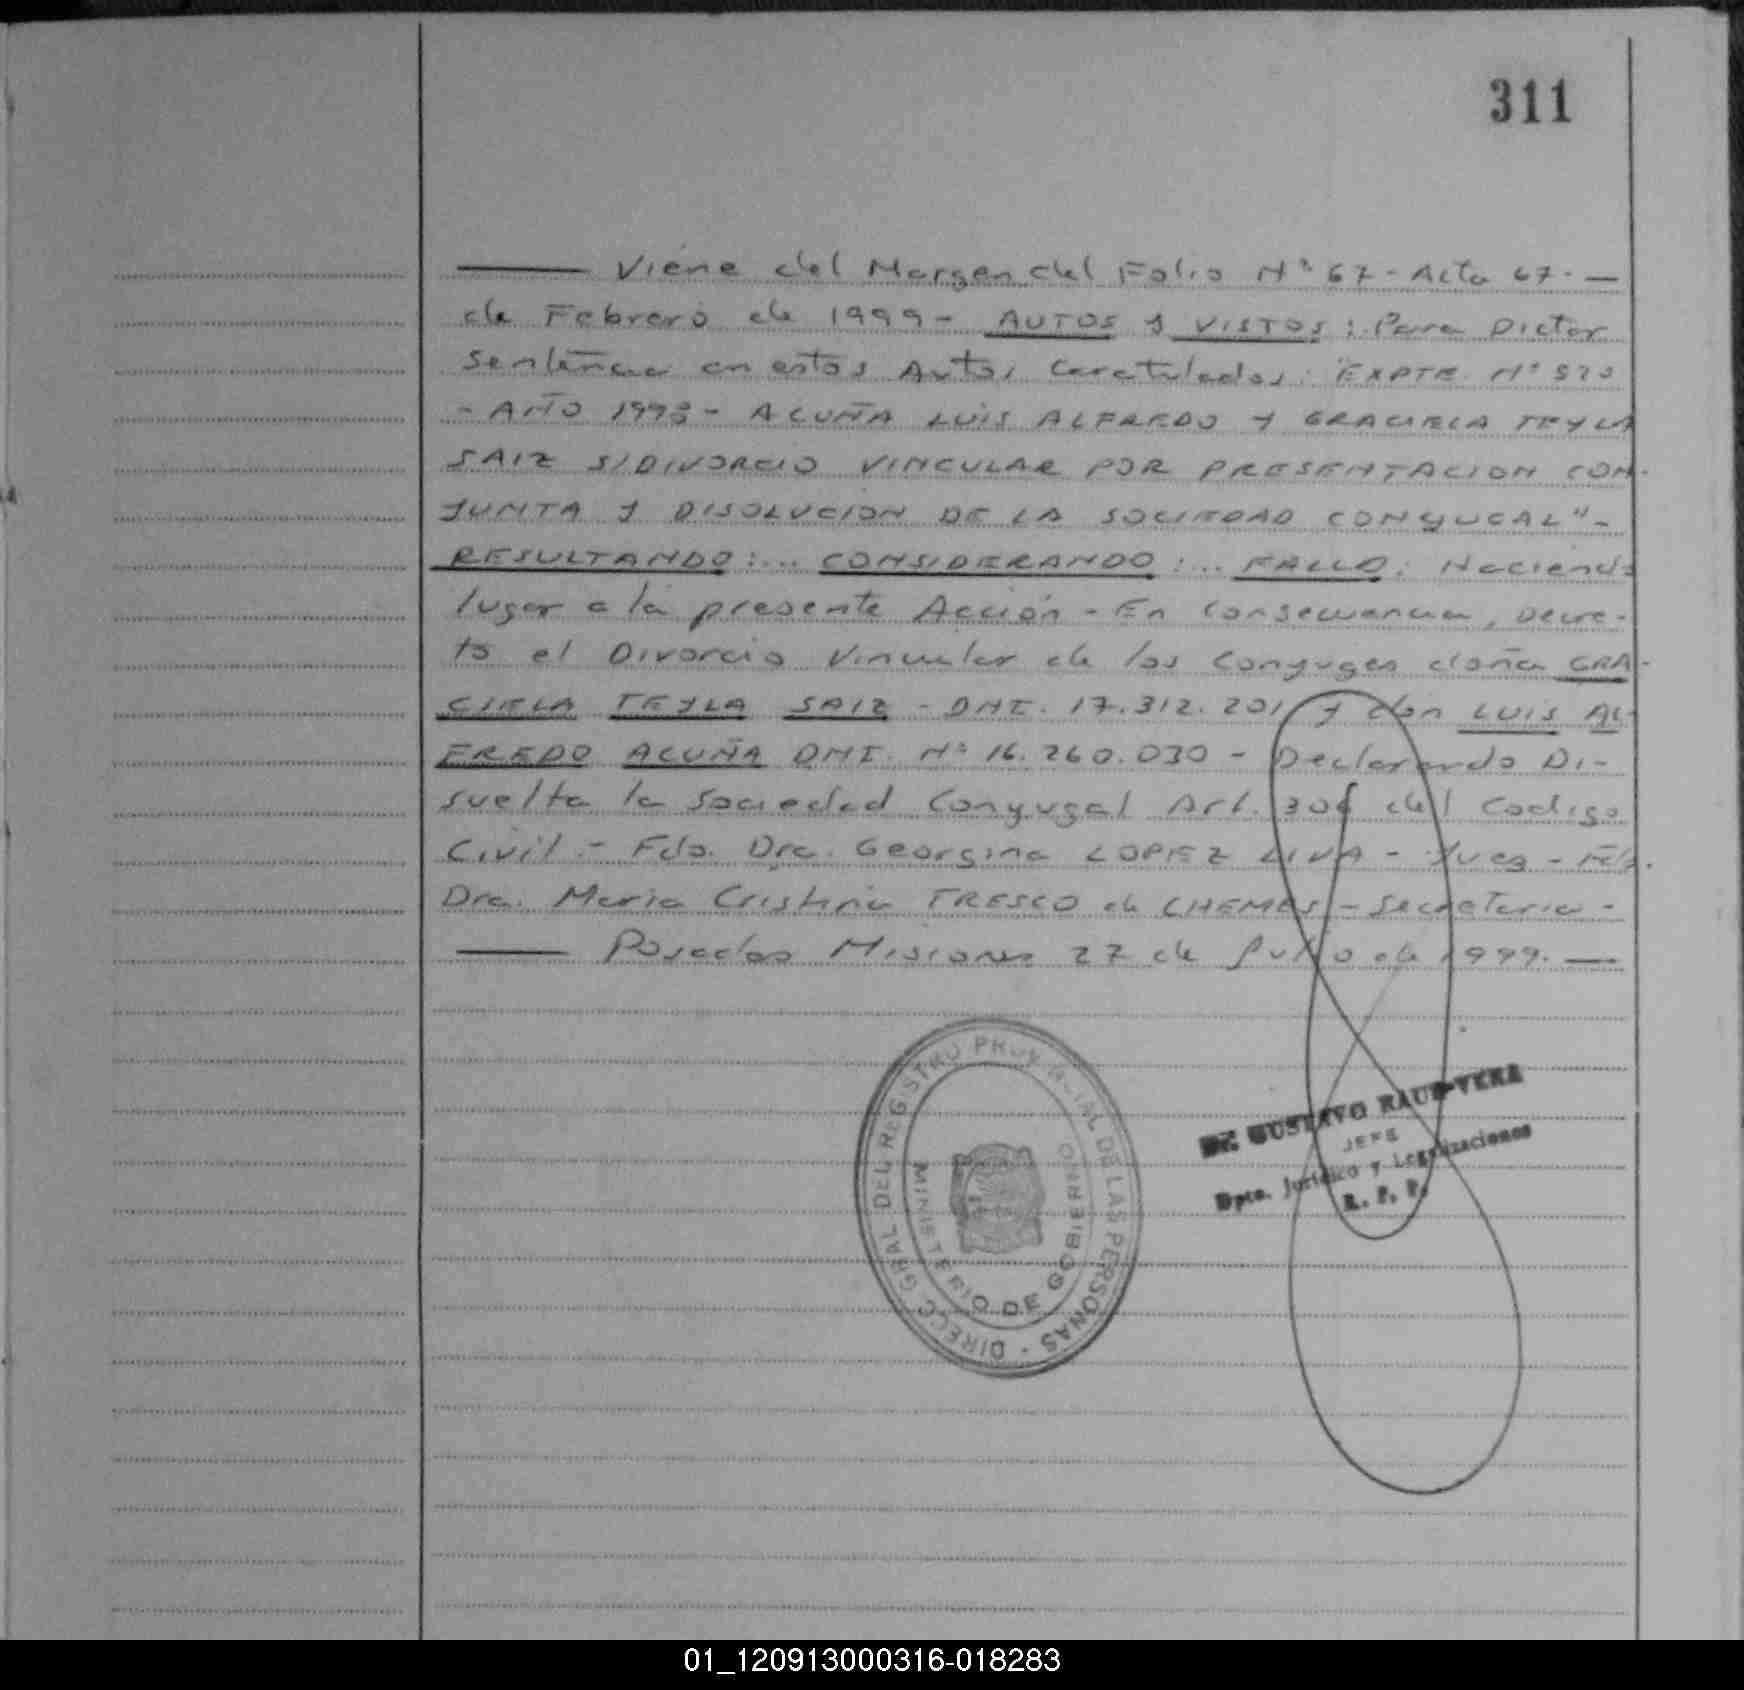 311
Viene del Margen del Folio Nº 67 - Acta 67. -
de Febrero de 1999 - AUTOS y VISTOS: Para Dictar
Sentencia en estos Autos Caratulados: "EXPTE. Nº 520
- AÑO 1998 - ACUÑA LUIS ALFREDO Y GRACIELA TEYLA
SAIZ S/DIVORCIO VINCULAR POR PRESENTACION CON-
JUNTA Y DISOLUCION DE LA SOCIEDAD CONYUGAL" -
RESULTANDO:... CONSIDERANDO:... FALLO: Haciendo
lugar a la presente Acción - En Consecuencia, Decre-
to el Divorcio Vincular de los Conyuges doña GRA-
CIELA TEYLA SAIZ - DNI. 17.312.201 y don LUIS AL-
FREDO ACUÑA DNI. Nº 16.260.030 - Declarando Di-
suelta la Sociedad Conyugal Art. 306 del Codigo
Civil. - Fdo. Dra. Georgina LOPEZ LIVA - Juez - Fdo.
Dra. Maria Cristina TRESCO de CHEMES - Secretaria -
Posadas Misiones 27 de Julio de 1999. -
DIRECC. GRAL. DEL REGISTRO PROVINCIAL DE LAS PERSONAS
MINISTERIO DE GOBIERNO
Dr. GUSTAVO RAUL VERA
JEFE
Dpto. Jurídico y Legalizaciones
R. P. P.
01_120913000316-018283